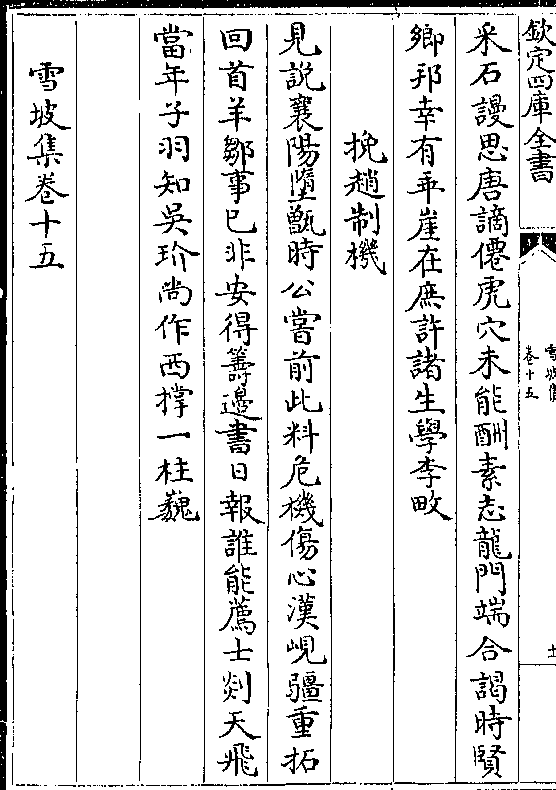 欽定四庫全書
雪坡集
卷十五
士
采石謾思唐謫僊虎穴未能酬素志龍門端合謁時賢
鄉邦幸有乖崖在庶許諸生學李畋
挽趙制機
見說襄陽墮甑時公嘗前此料危機傷心漢峴疆重拓
回首羊鄒事已非安得籌邊書日報誰能薦士剡天飛
當年子羽知吳玠尚作西撑一柱巍
雪坡集卷十五